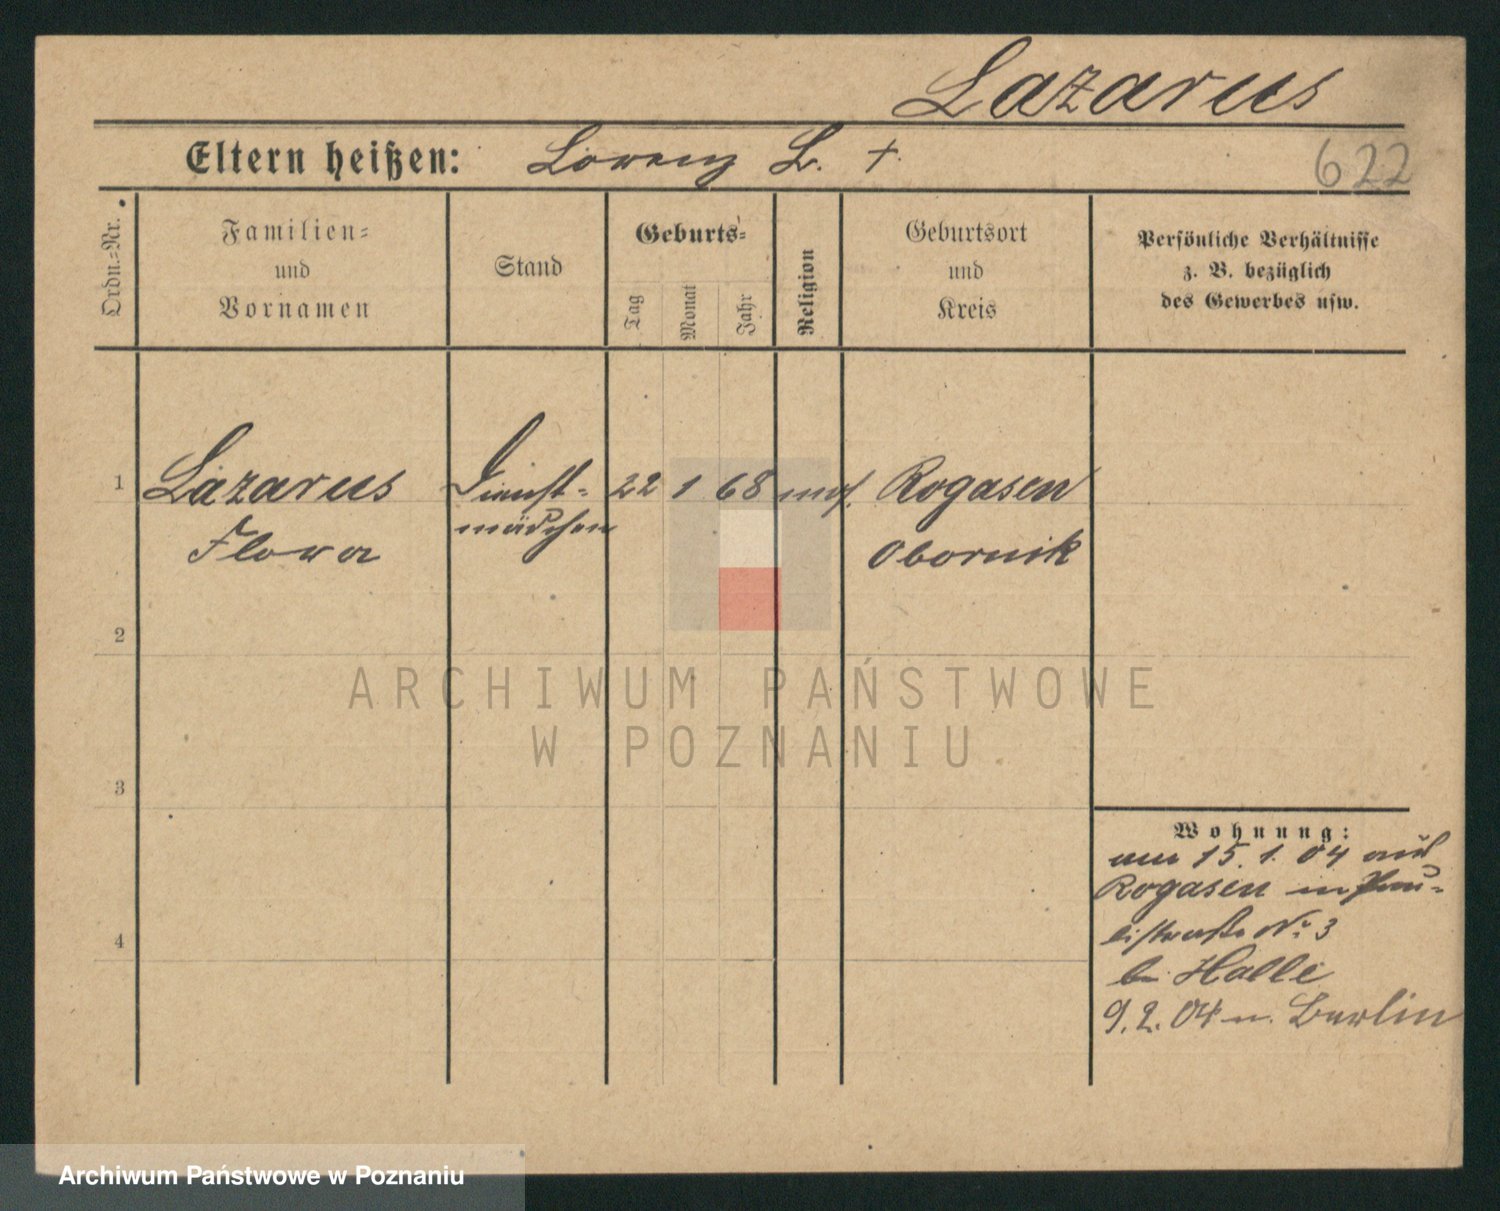 Lazarus
Eltern heißen: Lorenz L. †.
622
Ordn.-Nr.
Familien-
und
Vornamen
Stand
Geburts-
Tag
Monat
Jahr
Religion
Geburtsort
und
Kreis
Persönliche Verhältnisse
z. B. bezüglich
des Gewerbes usw.
1 Lazarus Dienst- 22 1 68 mos. Rogasen
Flora mädchen Obornik
2
3
4
Wohnung:
am 15. 1. 04 aus
Rogasen in Pau-
listraße No 3
b. Halle
9. 2. 04 n. Berlin
ARCHIWUM PAŃSTWOWE
W POZNANIU
Archiwum Państwowe w Poznaniu